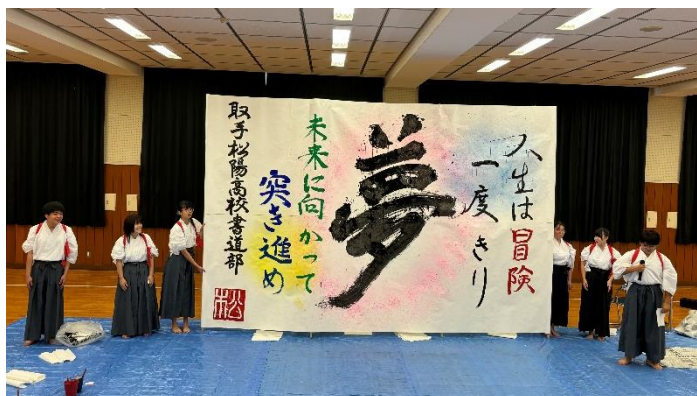 人生は冒険
一度きり
夢
未来に向かって
突き進め
取手松陽高校書道部
松